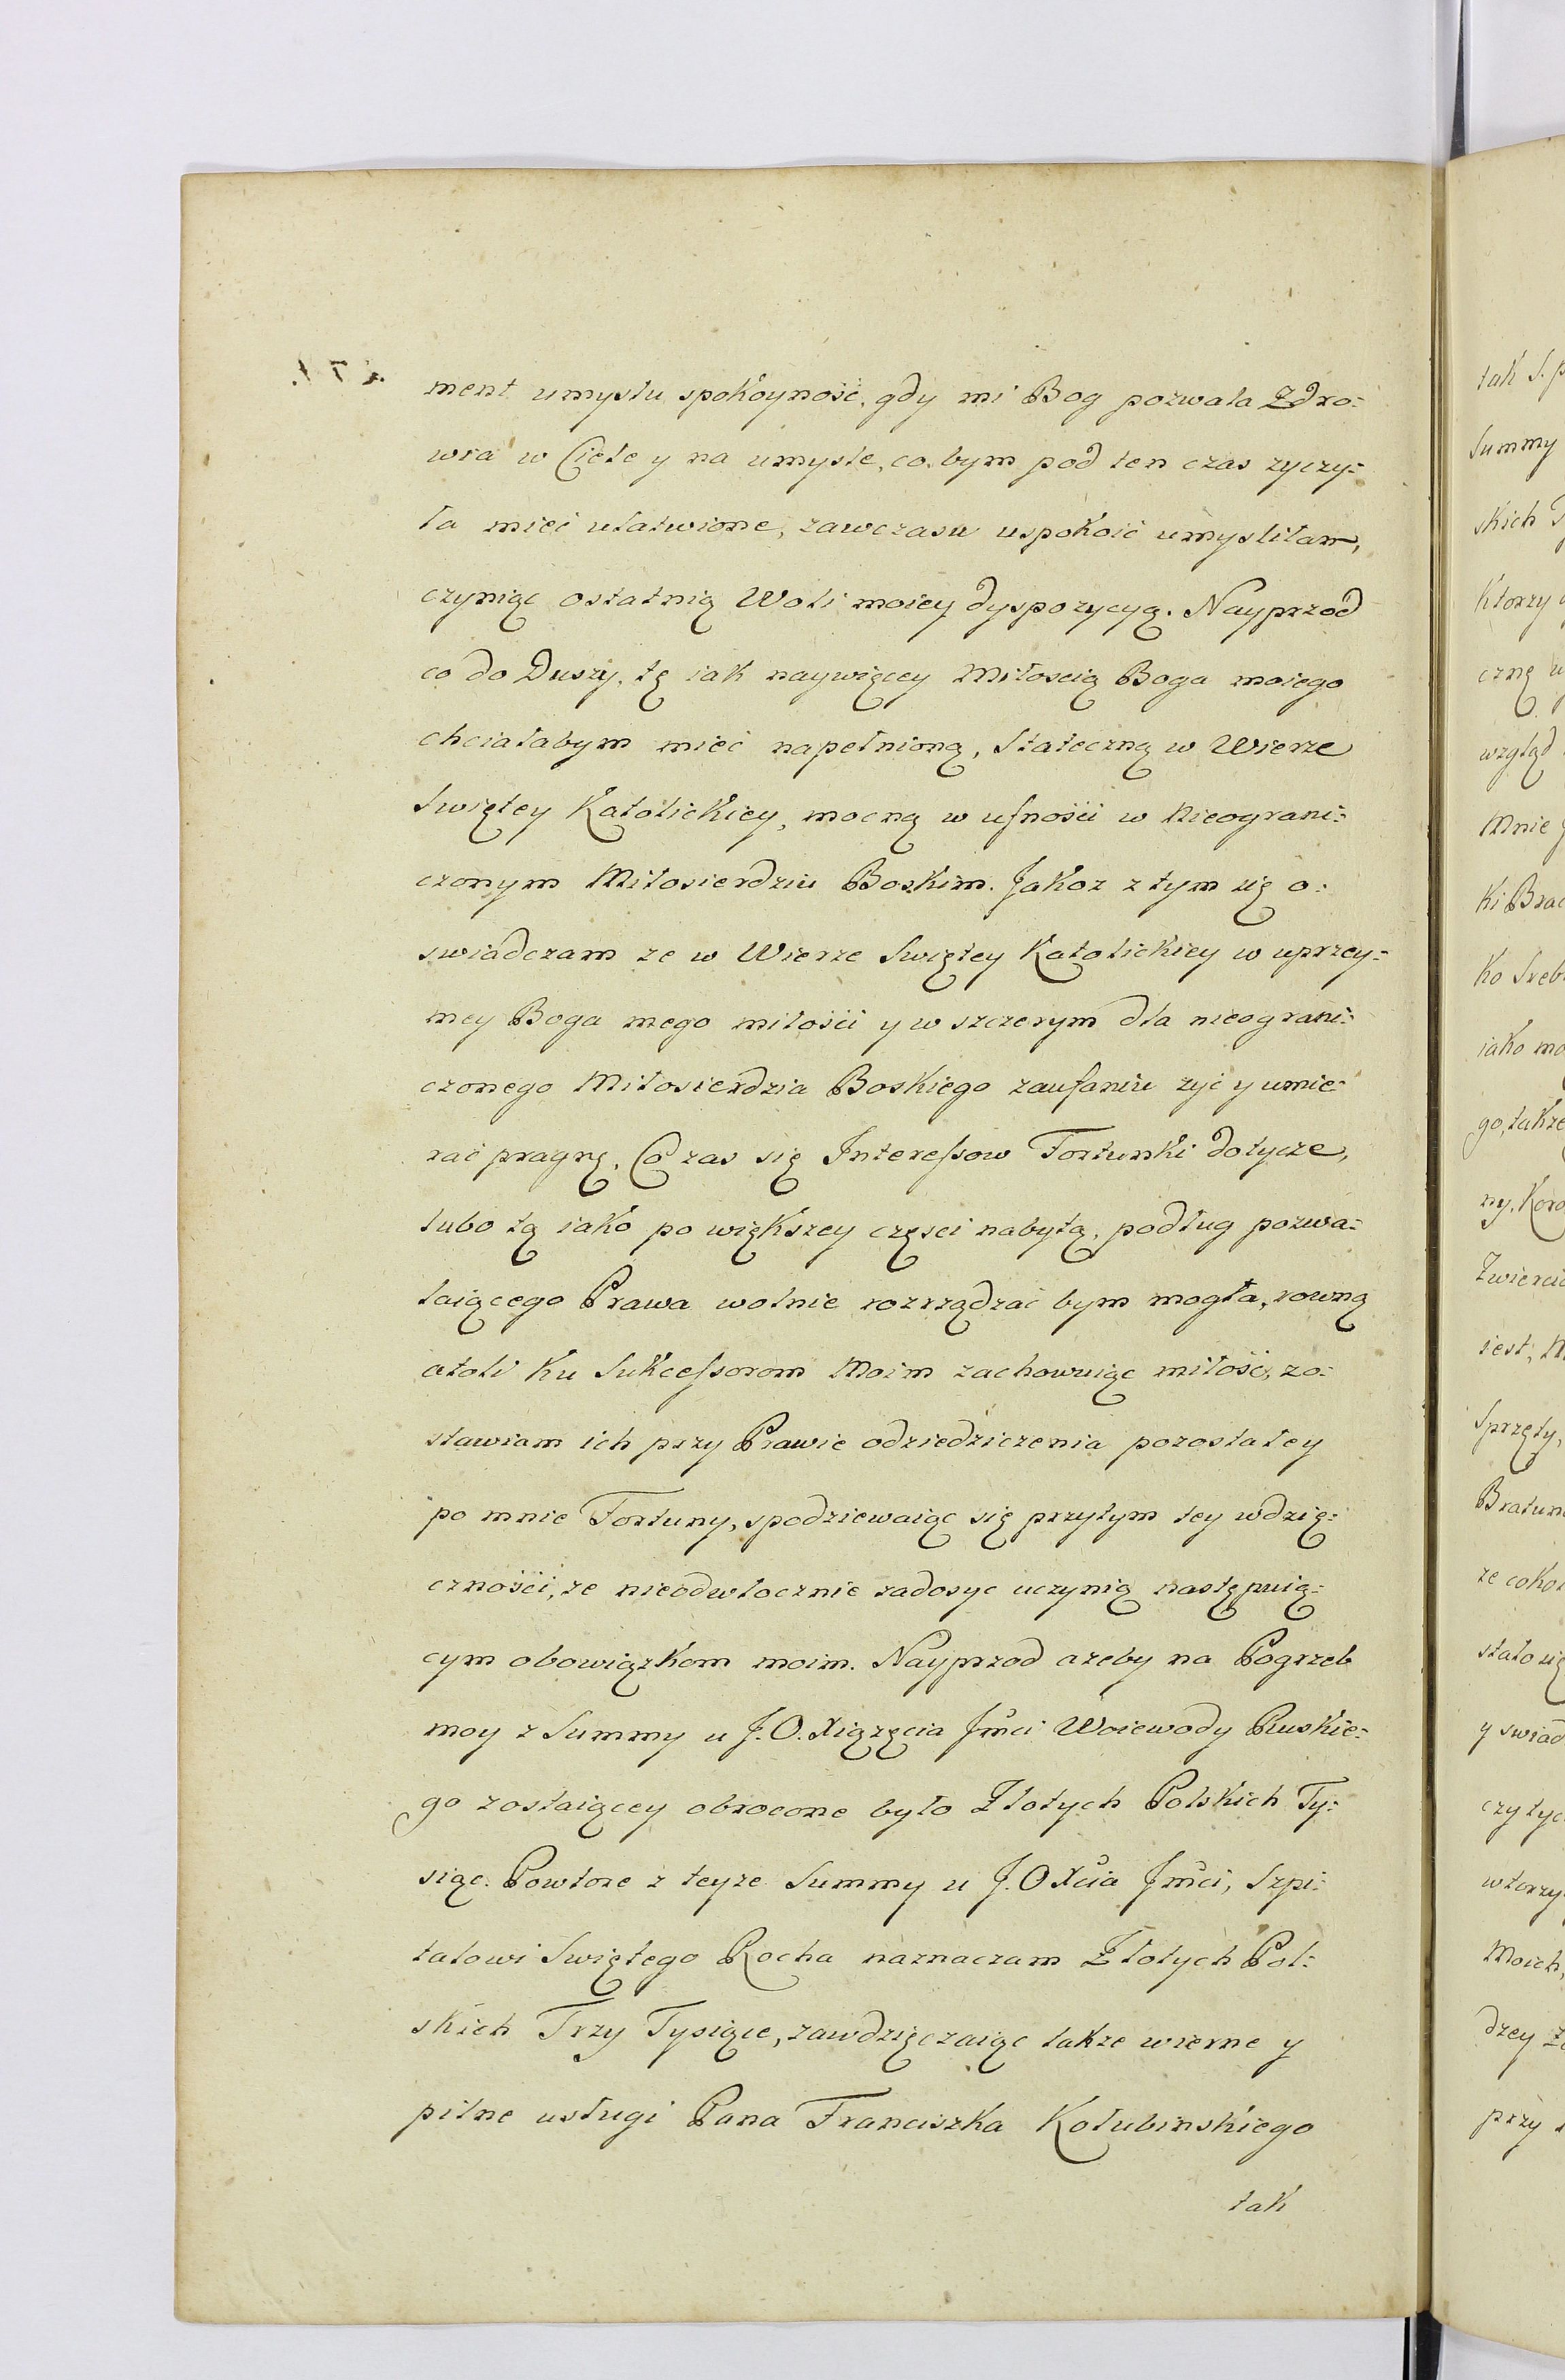 ment umysłu spokoyność, gdy mi Bog pozwala Zdro:
wia w Ciele y na umysle, co bym pod ten czas zyczy:
ła mieć ułatwione, zawczasu uspokoić umysliłam,
czyniąc ostatnią Woli moiey dyspozycyą. Nayprzod
co do Duszy, tę iak naywięcey Miłoscią Boga moiego
chciałabym mieć napełnioną, Stateczną w Wierze
Swiętey Katolickiey, mocną w ufności w Nieograni:
czonym Miłosierdziu Boskim. Jakoz z tym się o:
swiadczam ze w Wierze Swiętey Katolickiey w uprzey:
mey Boga mego miłości y w szczerym dla nieograni:
czonego Miłosierdzia Boskiego zaufaniu zyć y umie:
rać pragnę. Co zas się Interessow Fortunki dotycze,
lubo tą iako po większey częsci nabytą, podług pozwa:
laiącego Prawa wolnie rozrządzać bym mogła, rowną
atoli ku Sukcessorom Moim zachowuiąc miłość, zo:
stawiam ich przy Prawie odziedziczenia pozostałey
po mnie Fortuny, spodziewaiąc się przytym tey wdzię:
czności, ze nieodwłocznie zadosyc uczynią następuią:
cym obowiązkom moim. Nayprzod azeby na Pogrzeb
moy z Summy u J. O. Xiązęcia Jmci Woiewody Ruskie:
go zostaiącey obrocone było Złotych Polskich Ty:
siąc. Powtore z teyze Summy u J. O Xcia Jmci, Szpi:
talowi Swiętego Rocha naznaczam Złotych Pol:
skich Trzy Tysiące, zawdzięczaiąc takze wierne y
pilne usługi Pana Franciszka Kołubinskiego
tak
tak S. p
Summy
skich
Ktorzy
czną
wzgląd
Mnie
ki Brac
ko Sreb
iako mo
go, takze
ny, Koro
Zwiercia
iest,
Sprzęty,
Bratun
ze cokol
stało się
y swiad
czy tyc
wtorzy
Moich,
dzey
przy